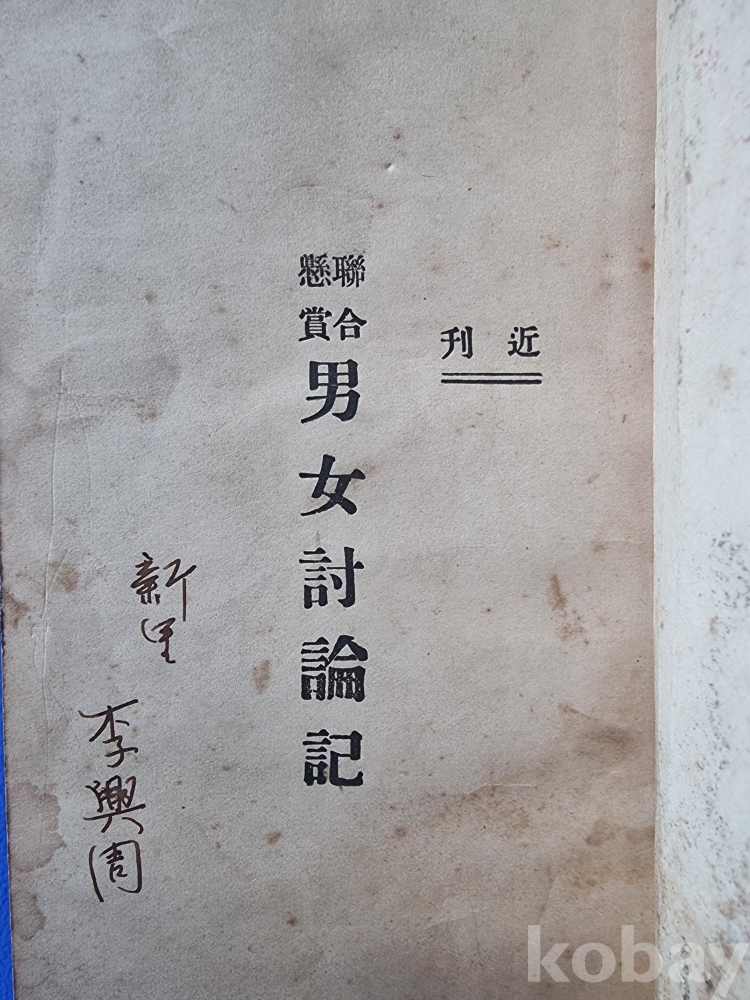 近刊
聯合
懸賞
男女討論記
新里
李興周
kobay